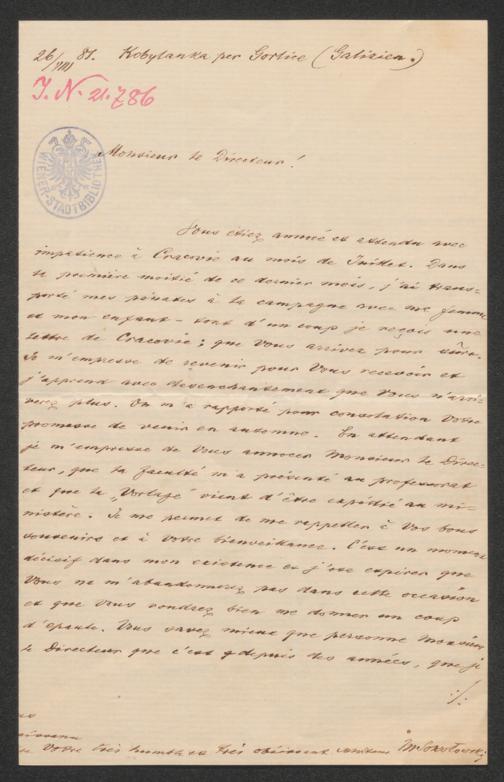 26/VIII 81. Kobylanka per Gorlice (Galizien.)
J. N. 21.786
WIENER-STADTBIBLIOTHEK
Monsieur le Directeur!
Vous étiez annoncé et attendu avec
impatience à Cracovie au mois de Juillet. Dans
la première moitié de ce dernier mois, j'ai trans-
porté mes pénates à la campagne avec ma femme
et mon enfant – tout d'un coup je reçois une
lettre de Cracovie; que Vous arrivez pour sûr.
Je m'empresse de revenir pour Vous recevoir et
j'apprend avec desenchantement que Vous n'arri-
verez plus. On m'a rapporté pour consolation Votre
promesse de venir en automne. En attendant
je m'empresse de Vous annoncer Monsieur le Direc-
teur, que la faculté m'a présenté au professorat
et que la „Vorlage" vient d'être expédié au mi-
nistère. Je me permet de me rappeller à Vos bons
souvenirs et à Votre bienveillance. C'est un moment
décisif dans mon existence et j'ose espérer que
Vous ne m'abandonnerez pas dans cette occasion
et que Vous voudrez bien me donner un coup
d'épaule. Vous savez mieux que personne Monsieur
le Directeur que c'est depuis des années, que je
./.
Votre très humble et très obéissant serviteur MSokołowski